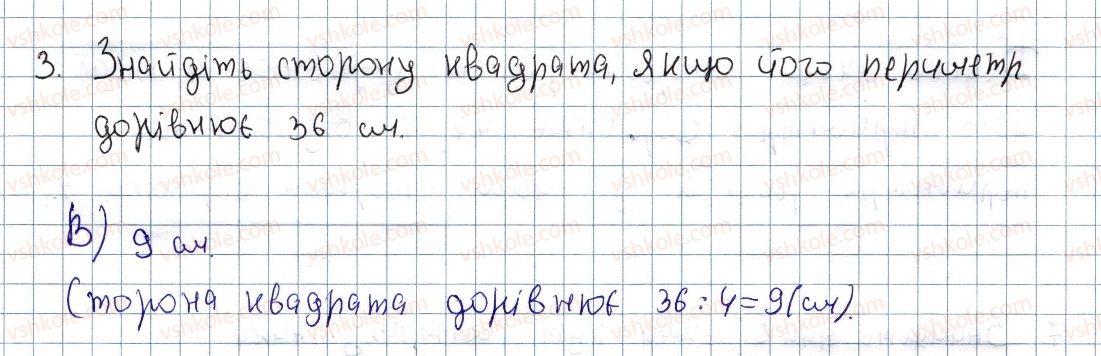 3. Знайдіть сторону квадрата, якщо його периметр
дорівнює 36 см.
В) 9 см.
Сторона квадрата дорівнює 36 : 4 = 9 (см).